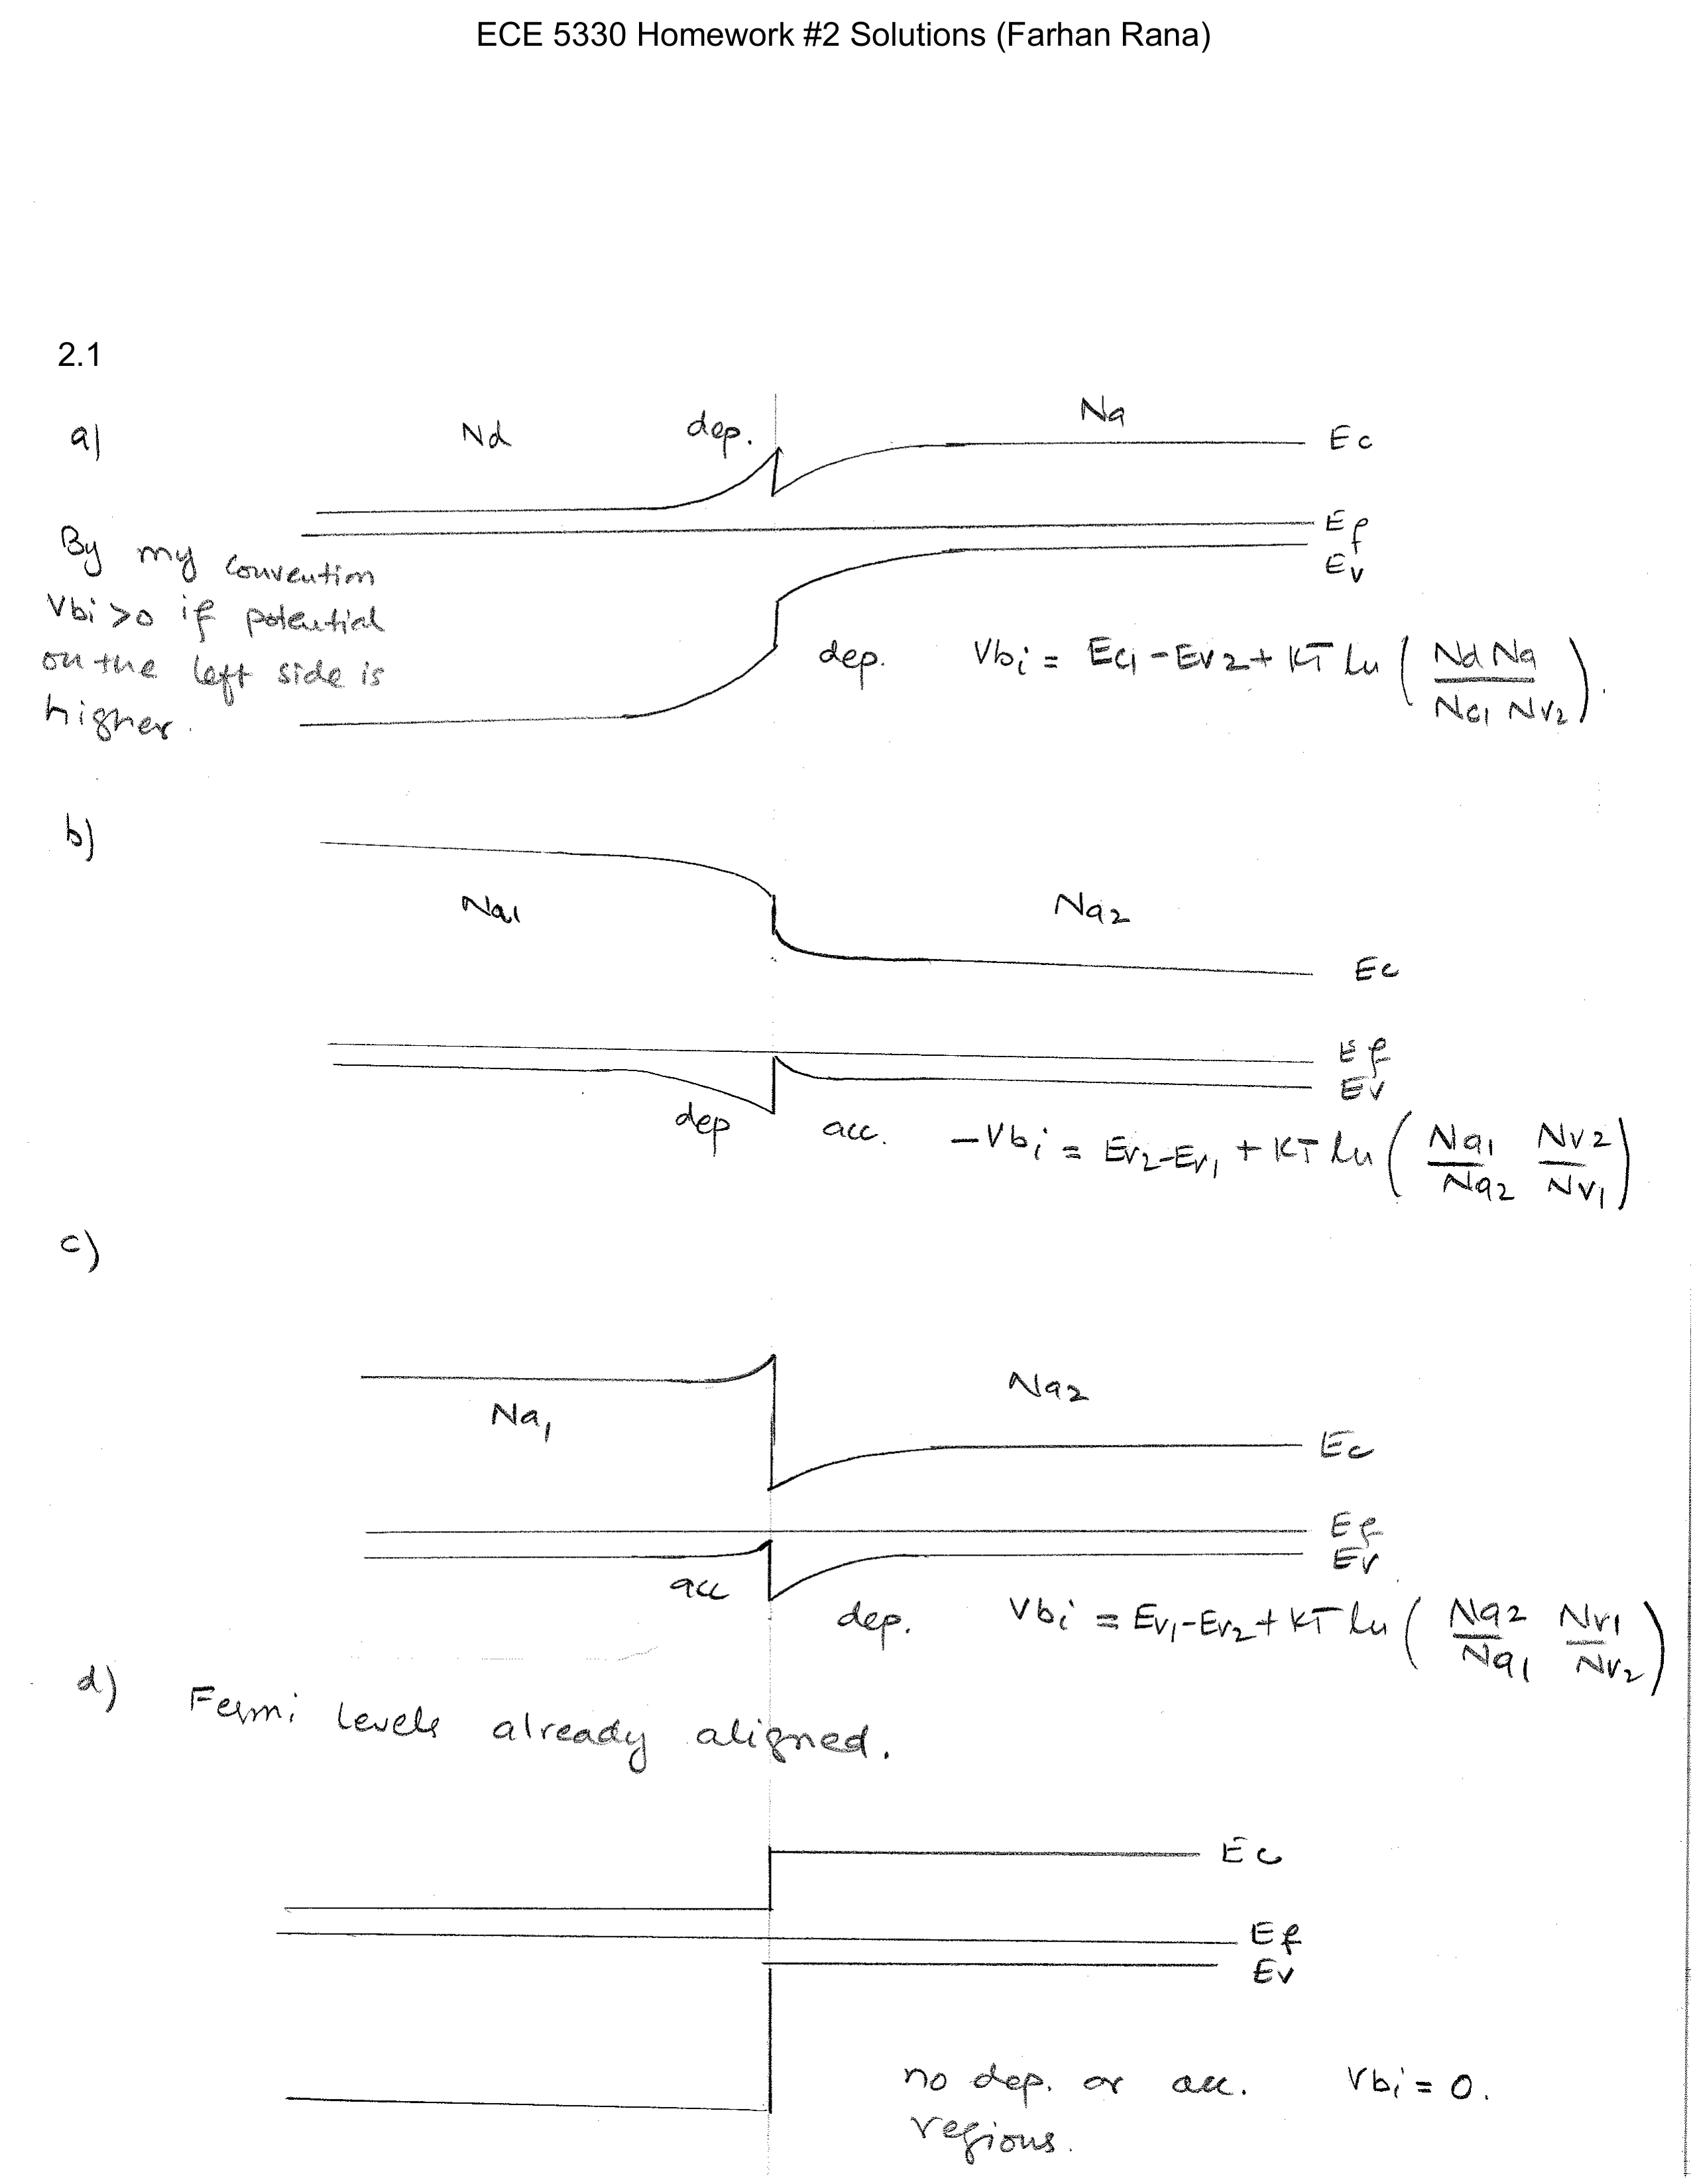 ECE 5330 Homework #2 Solutions (Farhan Rana)
2.1
a)
Nd
dep.
Na
Ec
Ef
Ev
By my convention
Vbi >0 if potential
on the left side is
higher.
dep.
Vbi = Ec1 - Ev2 + KT ln ( Nd Na / Nc1 Nv2 ).
b)
Na1
Na2
Ec
Ef
Ev
dep
acc.
-Vbi = Ev2-Ev1 + KT ln ( Na1 / Na2 Nv2 / Nv1 )
c)
Na1
Na2
Ec
Ef
Ev
acc
dep.
Vbi = Ev1-Ev2 + KT ln ( Na2 / Na1 Nv1 / Nv2 )
d) Fermi levels already aligned.
Ec
Ef
Ev
no dep. or acc. Vbi = 0.
regions.